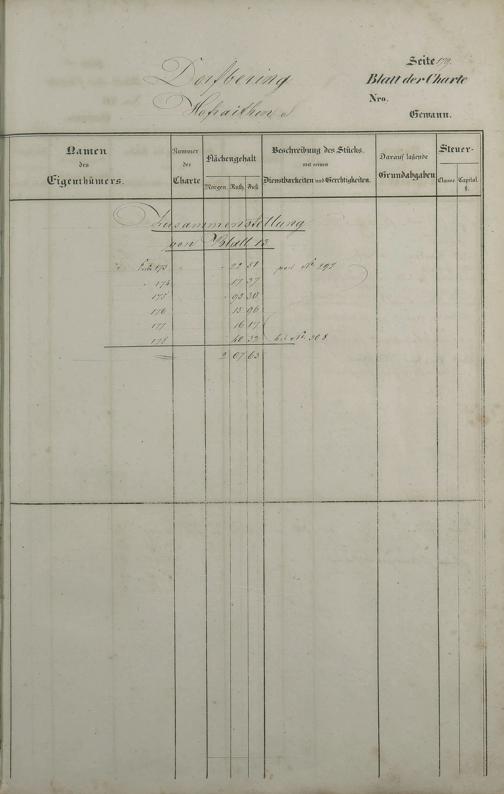 Seite 179.
Dorfbering
Blatt der Charte
Hofraithen
Nro.
Gewann.
Namen
des
Eigenthümers.
Nummer
der
Charte
Flächengehalt
Morgen. Ruth. Fuß
Beschreibung des Stücks.
mit seinen
Dienstbarkeiten und Gerechtigkeiten.
Darauf lastende
Grundabgaben
Steuer-
Classe. Capital.
fl.
Zusammenstellung
von Blatt 13
Seite 173 22 51 No. 297
174 17 37
175 93 30
176 15 96
177 16 17
178 40 32 bis No. 308
2 07 63